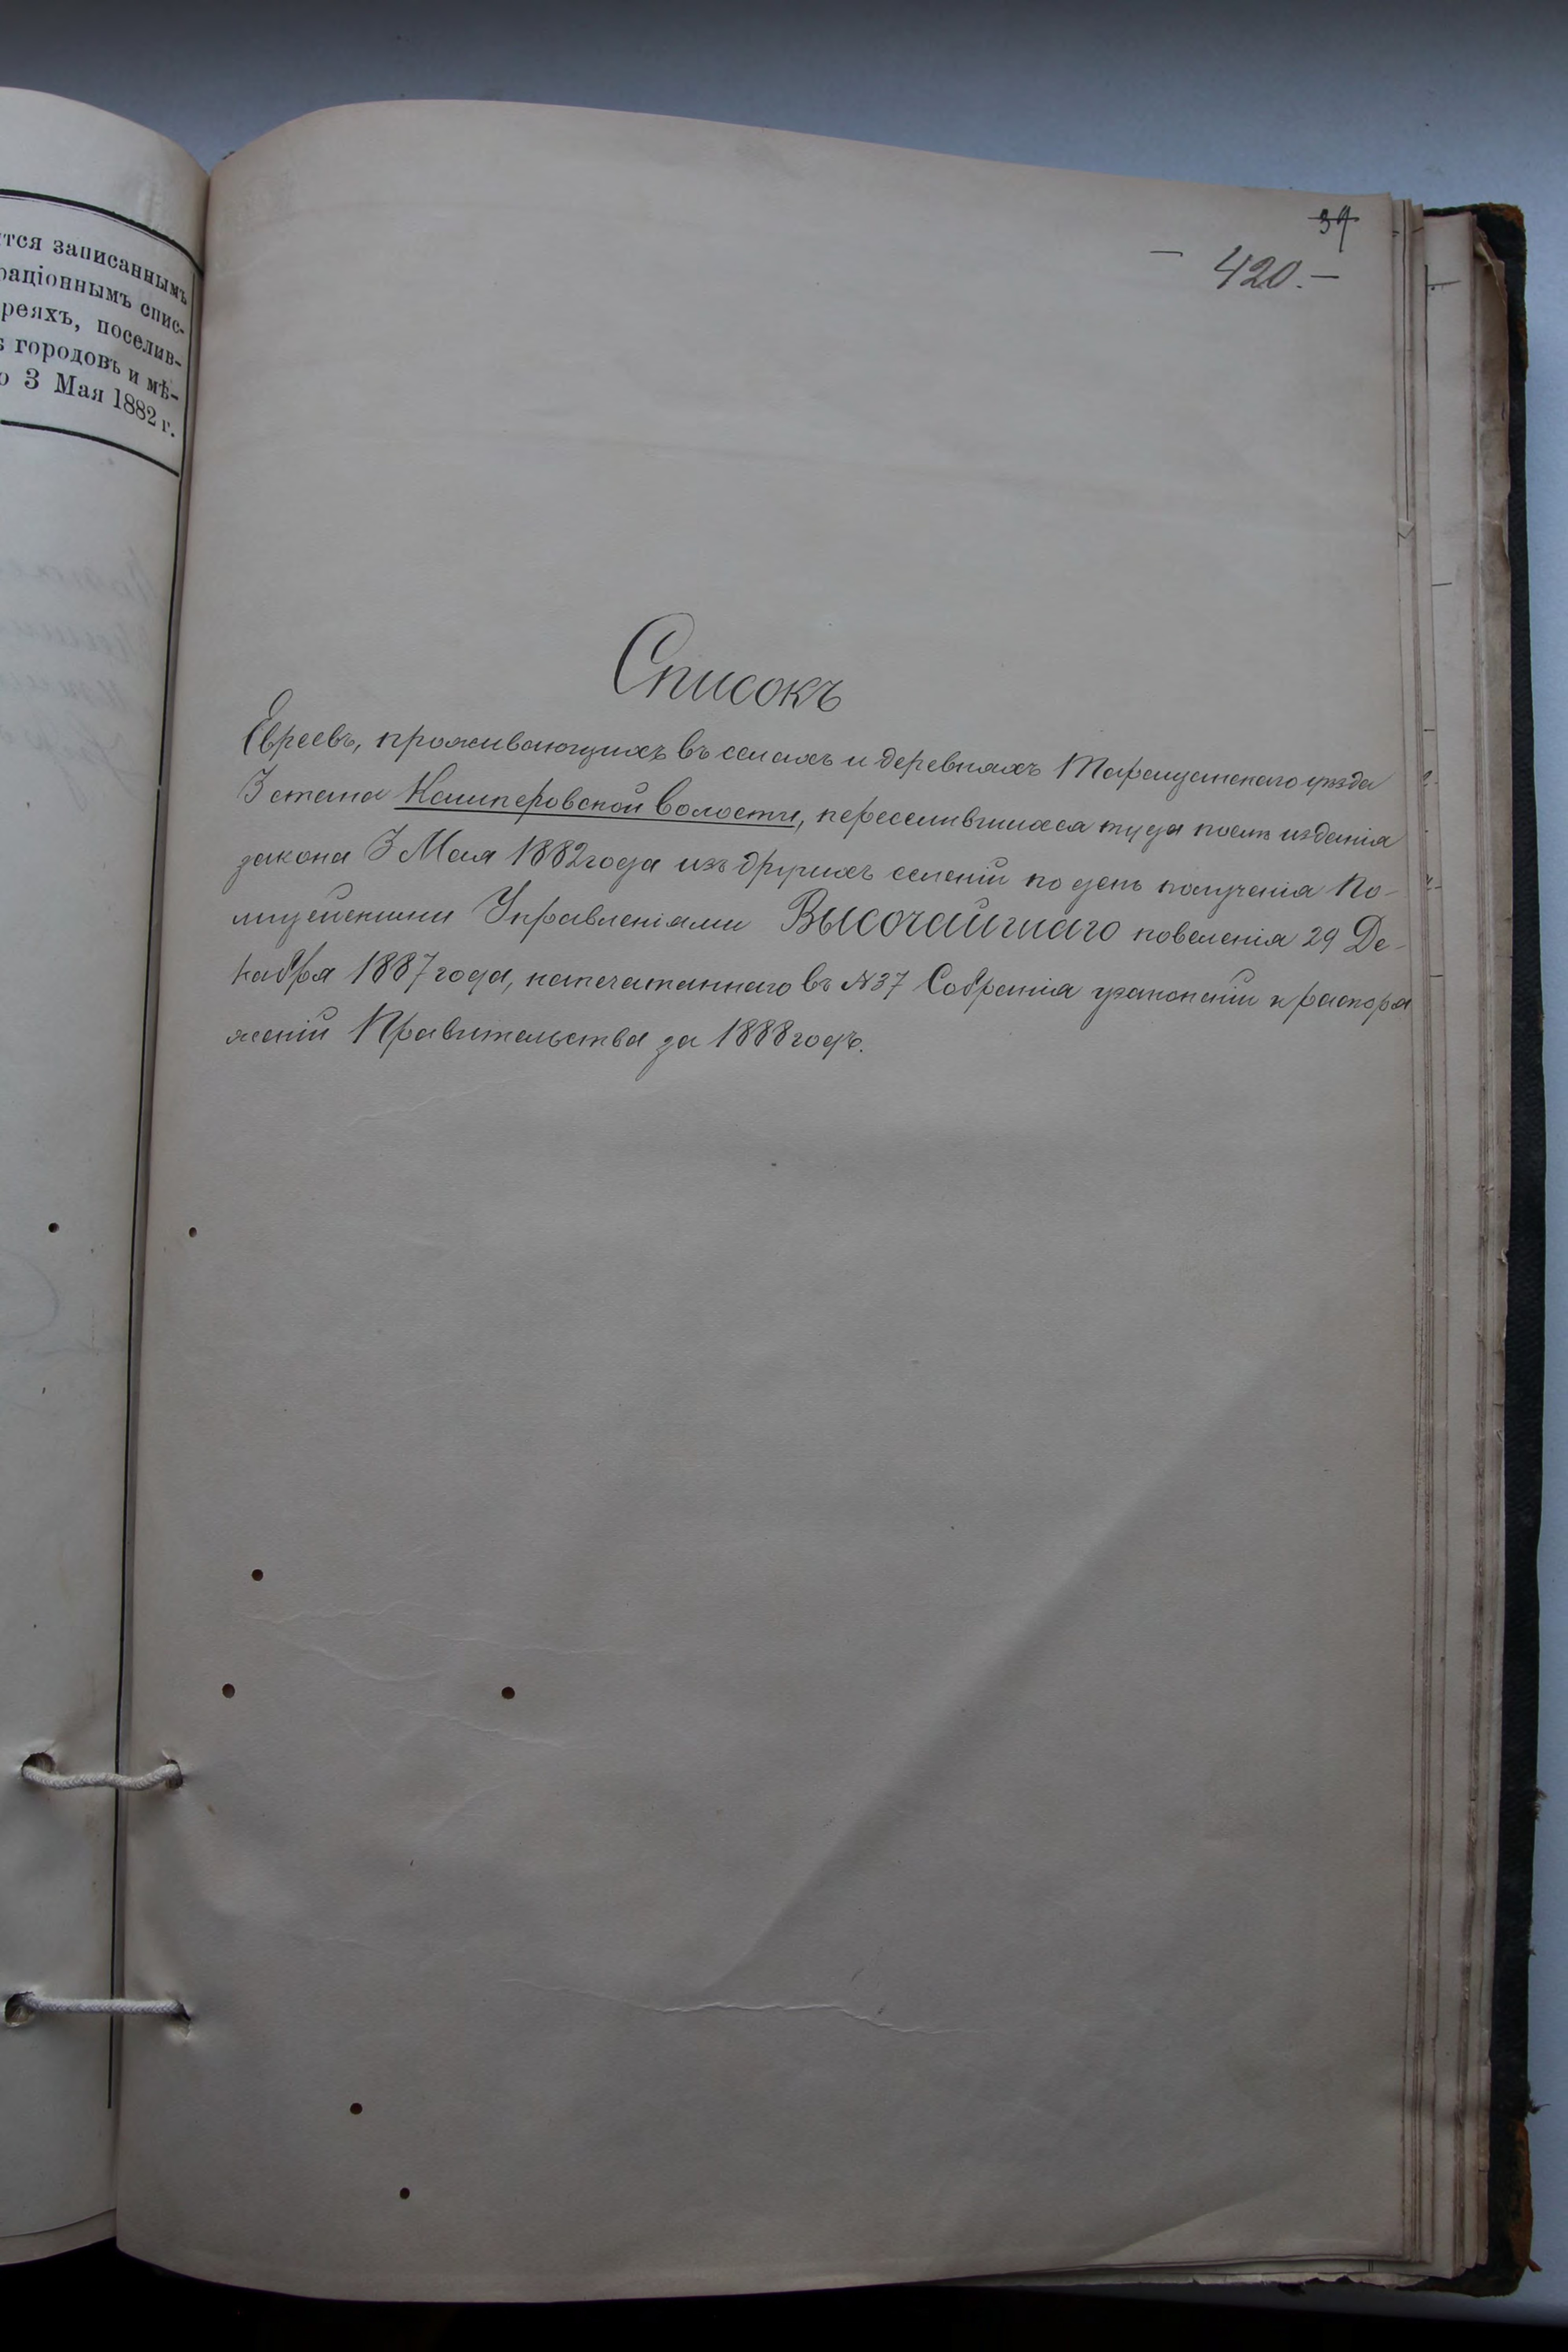 тся записаннымъ
раціоннымъ спис-
реяхъ, поселив-
ъ городовъ и мѣ-
о 3 Мая 1882 г.
39
— 420. —
Списокъ
Евреевъ, проживающихъ въ селахъ и деревняхъ Таращанскаго уѣзда
3 стана Кашперовской волости, переселившихся туда послѣ изданія
закона 3 Мая 1882 года изъ другихъ селеній по день полученія По-
лицейскими Управленіями Высочайшаго повеленія 29 Де-
кабря 1887 года, напечатаннаго въ №37 Собранія узаконеній и распоря
женій Правительства за 1888 годъ.